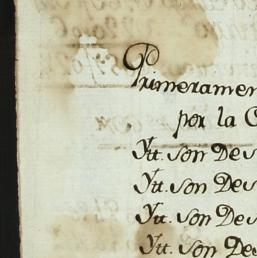 Primeramen
por la C
Ytt. son Des
Ytt. son Des
Ytt. son Des
Ytt. son Des